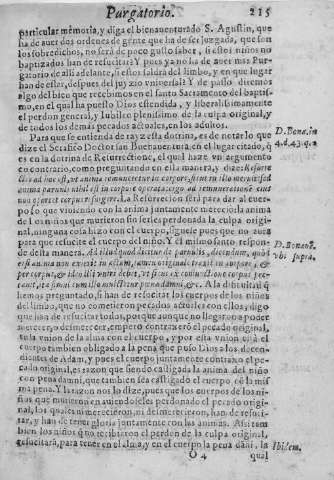 Purgatorio. 215
particular memoria, y diga el bienauenturado S. Agustin, que
ha de auer dos ordenes de gente que ha de ser juzgada, que son
los sobredichos, no será de poco gusto saber, si estos niños no
baptizados han de resucitar? Y pues ya no ha de auer mas Pur-
gatorio de alli adelante, si estos saldrá del limbo, y en que lugar
han de estar, despues del juyzio vniuersal? Y de passo diremos
algo del bien que recebimos en el santo Sacramento del baptis-
mo, en el qual ha puesto Dios estendida, y liberalissimamente
el perdon general, y Iubileo plenissimo de la culpa original, y
de todos los demas pecados actuales, en los adultos.
Para que se entienda de rayz esta dotrina, es de notar lo que
dize el Serafico Doctor san Buenauentura en el lugar citado, q̃
es en la dotrina de Resurrectione, el qual haze vn argumento
en contrario, como preguntando en esta manera, y dize:
D. Bona. in
4. d. 43. q. 2
non oportet corpus surgere. La Resurreccion será para dar al cuer-
po que viuiendo con la anima juntamente merecio: la anima
de los niños que murieron sin serles perdonada la culpa original,
ninguna cosa hizo con el cuerpo, siguese pues que no aura
para que resucite el cuerpo del niño. Y el mismo santo respon-
de desta manera. Ad illud quod dicitur de paruulis, dicendum, quòd
D. Bonau.
vbi supra.
per corpus, &
A la dificultad q̃
hemos preguntado, si han de resucitar los cuerpos de los niños
del limbo, que no cometieron pecados actuales con ellos, digo
que han de resucitar todos, porque aunque no llegaron a poder
merecer, o desmerecer, empero contraxeró el pecado original,
en la vnion de la alma con el cuerpo, y por esta vnion está el
cuerpo tambien obligado a la pena que puso Dios a los decen-
dientes de Adan, y pues el cuerpo juntamente contraxo el pe-
cado original, es razon que siendo castigada la anima del niño
con pena damni, que tambien sea castigado el cuerpo có la mis
ma pena. Y la razon nos lo dize, pues que los cuerpos de los ni-
ños que murieron en auiendoseles perdonado el pecado origi-
nal, los quales ni merecieron, ni desmerecieron, han de resuci-
tar, y han de tener gloria juntamente con las animas. Assi tam
bien los niños q̃ no recibieron el perdon de la culpa original,
resucitará, para tener en el alma, y en el cuerpo la pena dáni. la
Ibidem.
O 4 qual